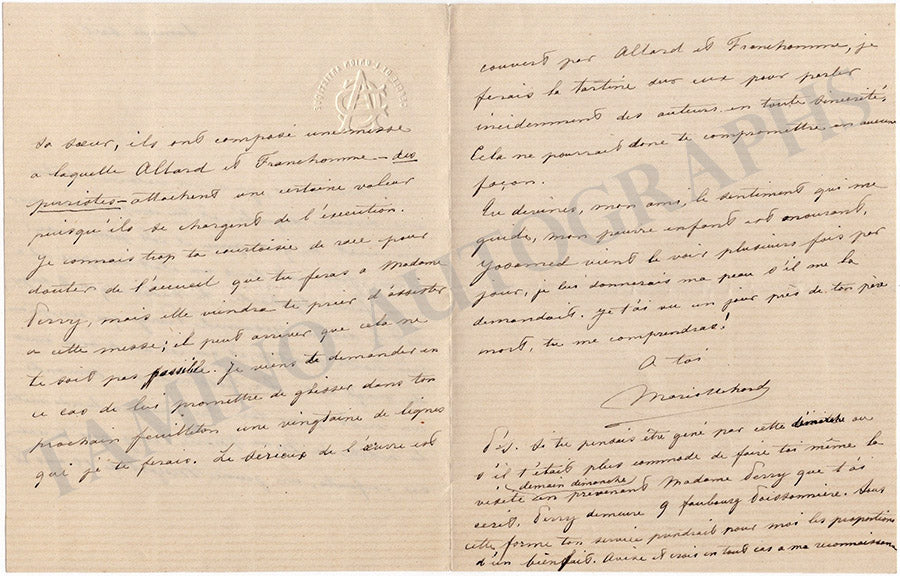 sa sœur, ils ont composé une messe
a laquelle Allard et Franchomme – des
puristes – attachent une certaine valeur
puisqu'ils se chargent de l'exécution.
Je connais trop ta courtoisie de race pour
douter de l'accueil que tu feras a Madame
Perry, mais elle viendra te prier d'assister
a cette messe; il peut arriver que cela ne
te soit pas possible. Je viens te demander en
ce cas de lui promettre de glisser dans ton
prochain feuilleton une vingtaine de lignes
que je te ferais. Le sérieux de l'œuvre est
couvert par Allard et Franchomme, je
ferais la tartine sur eux pour parler
incidemment des auteurs en toute sincérité.
Cela ne pourrait donc te compromettre en aucune
façon.
Tu devines, mon ami, le sentiment qui me
guide, mon pauvre enfant est mourant,
vient le voir plusieurs fois par
jour, je lui donnerais ma peau s'il me la
demandait. Je t'ai vu un jour près de ton père
mort, tu me comprendras!
A toi
Mario Uchard
P.S. Si tu pensais être gêné par cette démarche ou
s'il t'était plus commode de faire toi même la
demain dimanche
visite en prévenant Madame Perry que t'ai
écrit, Perry demeure 9 faubourg Poissonnière. Sous
cette forme ton service prendrait pour moi les proportions
d'un bienfait. Avise et crois en tout cas a ma reconnaissance
TAMINO AUTOGRAPHS